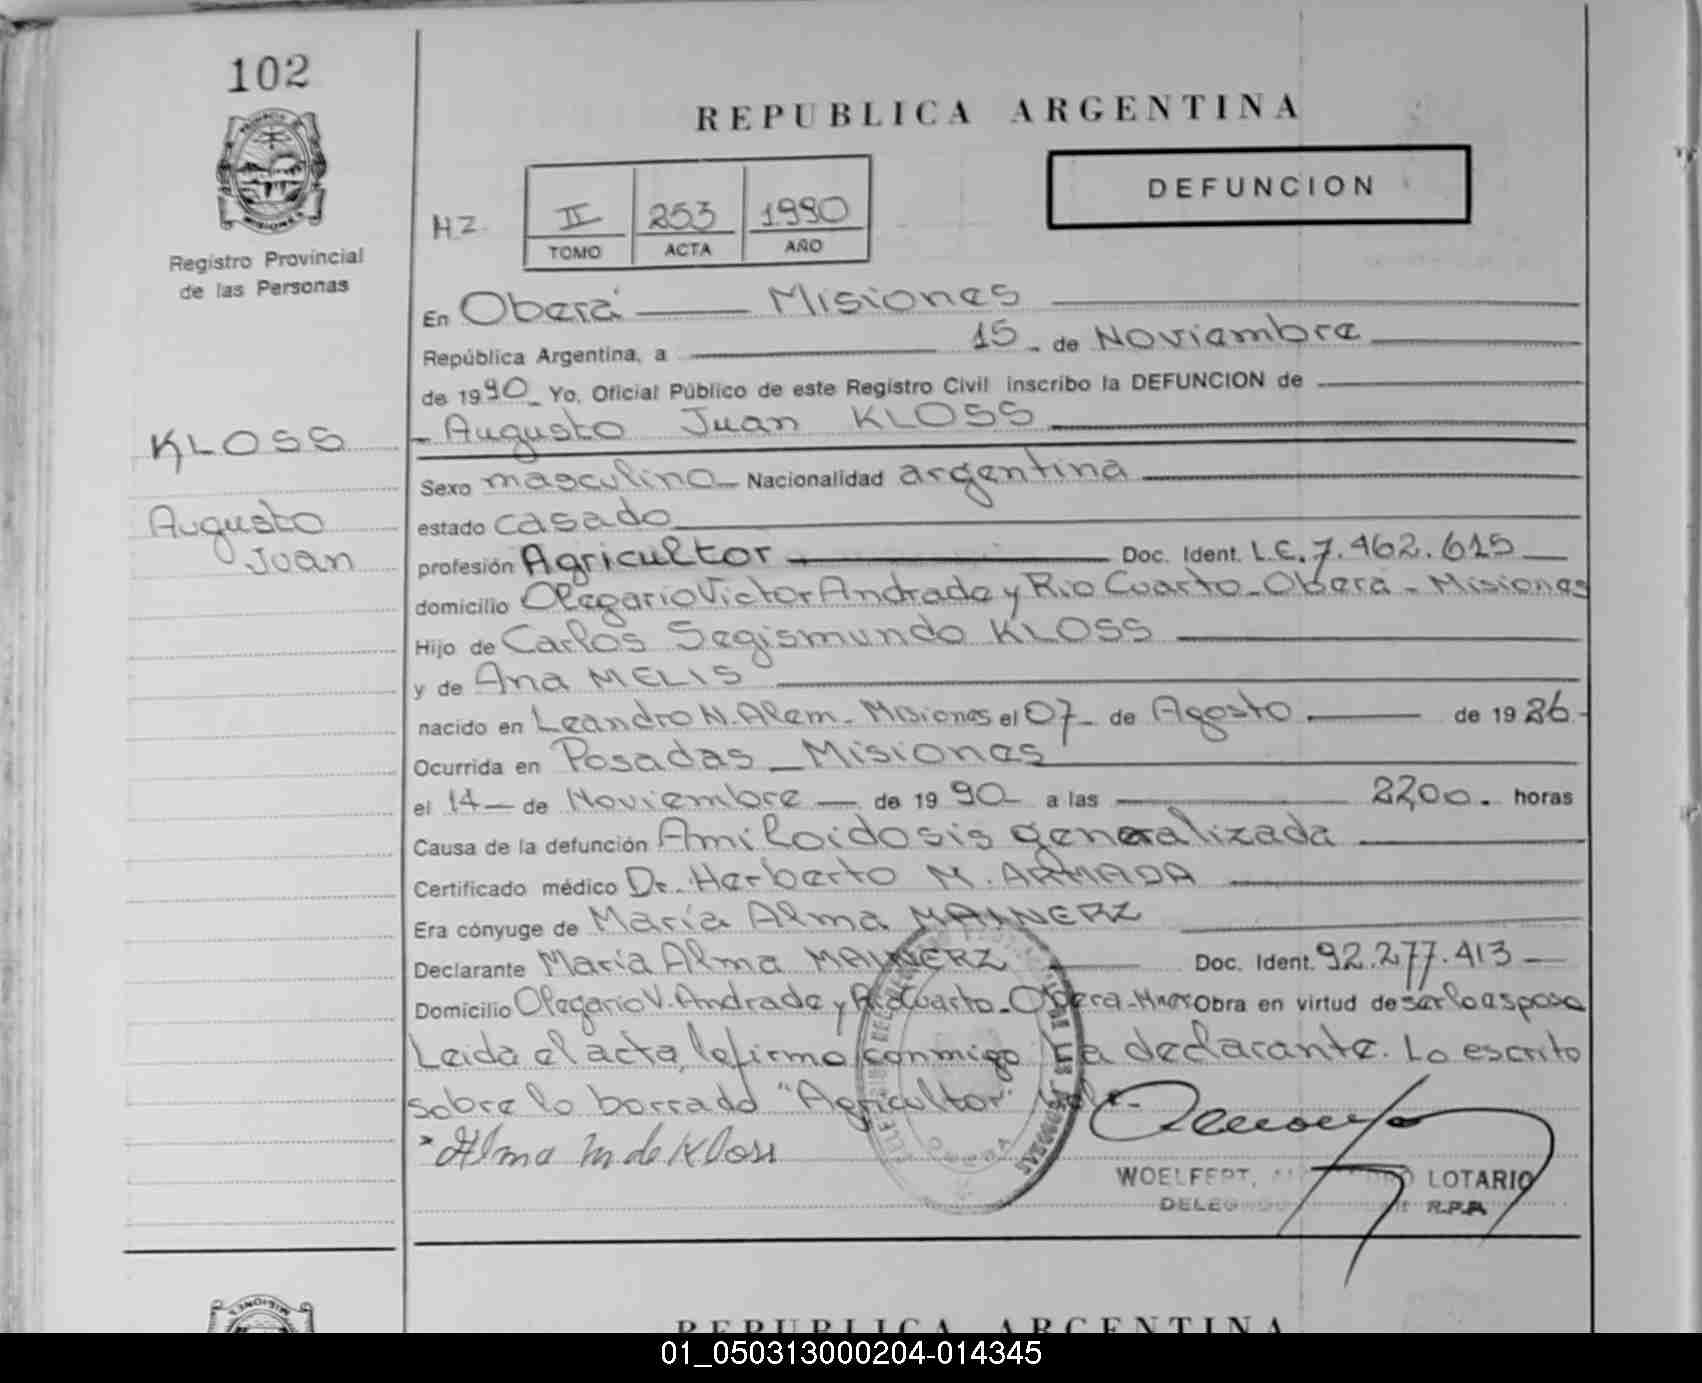 102
REPUBLICA ARGENTINA
DEFUNCION
HZ. II 253 1990
TOMO ACTA AÑO
PROVINCIA
MISIONES
Registro Provincial
de las Personas
En Oberá — Misiones
República Argentina, a 15 - de Noviembre
de 1990 - Yo, Oficial Público de este Registro Civil inscribo la DEFUNCION de
KLOSS
- Augusto Juan KLOSS
Sexo masculino - Nacionalidad argentina
Augusto
Juan
estado casado
profesión Agricultor Doc. Ident. L.E. 7.462.615
domicilio Olegario Victor Andrade y Rio Cuarto - Oberá - Misiones
Hijo de Carlos Segismundo KLOSS
y de Ana MELIS
nacido en Leandro N. Alem - Misiones el 07 - de Agosto de 1926 -
Ocurrida en Posadas - Misiones
el 14 - de Noviembre - de 1990 - a las 22,00. horas
Causa de la defunción Amiloidosis generalizada
Certificado médico Dr. Herberto M. ARMADA
Era cónyuge de María Alma MAINERZ
Declarante María Alma MAINERZ Doc. Ident. 92.277.413 —
Domicilio Olegario V. Andrade y Rio Cuarto - Oberá - Mnes Obra en virtud de ser la esposa
Leida el acta, la firma conmigo La declarante. Lo escrito
sobre lo borrado "Agricultor" Vale.-
Alma M de Kloss
WOELFERT, LOTARIO
R.P.P.
MISIONES
REPUBLICA ARGENTINA
01_050313000204-014345